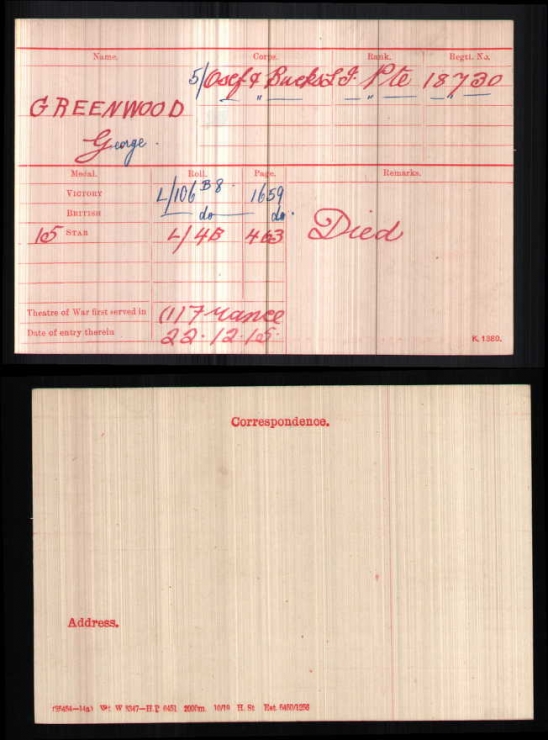 Name. Corps. Rank. Regtl. No.
5/Oxf & Bucks L I. Pte 18730
" " "
GREENWOOD
George.
Medal. Roll. Page. Remarks.
VICTORY L/106 B8. 1659
BRITISH do do.
15 STAR L/4B 463 Died
Theatre of War first served in (1) France
Date of entry therein 22.12.15.
K. 1380.
Correspondence.
Address.
Wt. W 5347—H.P. 6451 2000m. 10/19 H. St